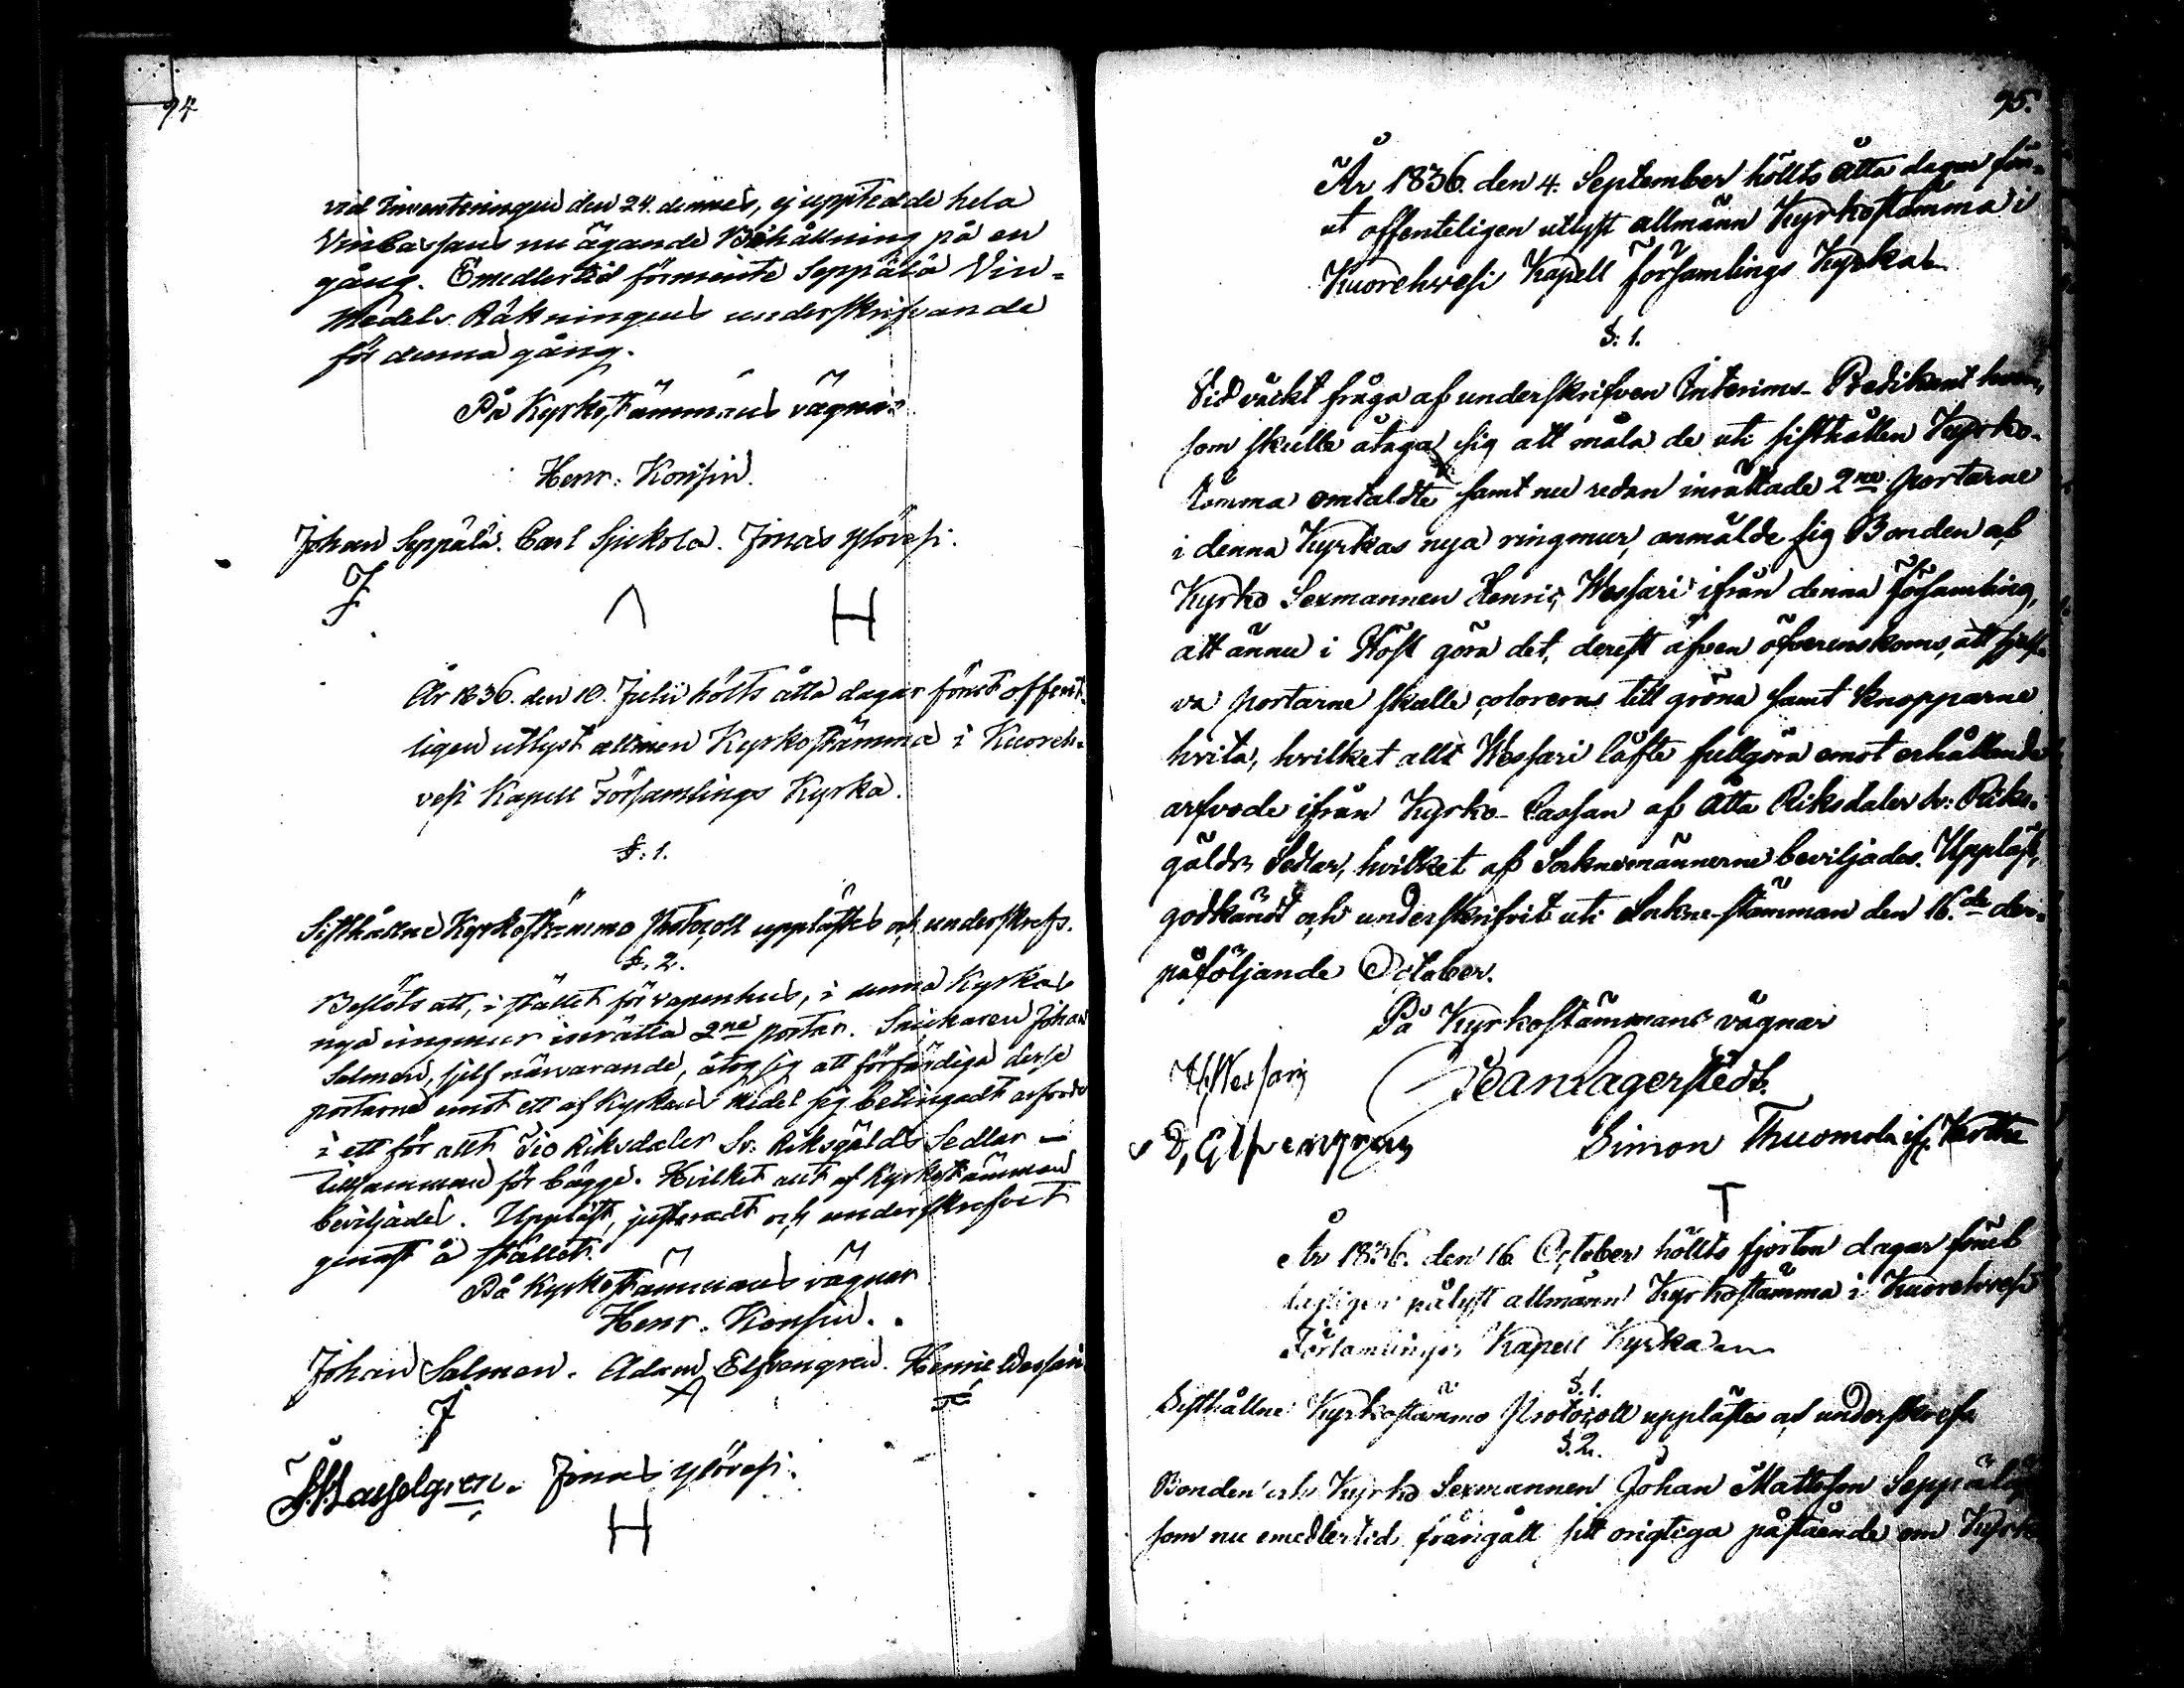 94
vid Inventeringen den 24. dennes, ej uppträdde hela
VinCassans nu ägande Behållning på en
gång. Emedlertid förmente Seppälä Vin-
Medels Räkningens underskrifvande
för denna gång.
På Kyrkostämmans vägnar
Henr: Konsin.
Johan Seppälä. Carl Sjukola. Jonas Ylövesi.
J Λ H
År 1836. den 10. Julii hölts åtta dagar förut offent-
ligen utlyst allmen Kyrkostämma i Kuoreh-
vesi Kapell Församlings Kyrka.
§: 1.
Sisthållne Kyrkostämmo Protocoll upplästes och underskrefs.
§. 2.
Beslöts att, i stället för vapenhus, i denna Kyrkas
nya ringmur inrätta 2ne portar. Snickaren Johan
Salmen, sjelf närvarande, åtog sig att förfärdiga desse
portarne emot ett af Kyrkans Medel sig betingadt arfvode
i ett för allt Tio Riksdaler Sv. Riksgälds Sedlar —
tillsamman för bägge. Hvilket allt af Kyrkostämman
beviljades. Uppläst, justeradt och underskrefvet
genast å stället.
På Kyrkostämmans vägnar
Henr. Konsin.
Johan Salmen. Adam Elfvengren. Henric Wessari
J A
Hasselgren. Jonas Ylövesi.
H
95.
År 1836. den 4. September höllts Åtta dagar för-
ut offenteligen utlyst allmänn Kyrkostämma i
Kuorehwesi Kapell Församlings Kyrka
§. 1.
Vid väckt fråga af underskrifven Interims-Predikant hvem,
som skulle åtaga sig att måla de uti sisthållen Kyrko-
stämma omtaldte samt nu redan inrättade 2ne portarne
i denna Kyrkas nya ringmur, anmälde sig Bonden af
Kyrko Sexmannen Henric Wessari ifrån denna Församling,
att ännu i Höst göra det, derest äfven öfverenskoms, att sjelf-
va portarne skulle coloreras till gröna samt knopparne
hvita, hvilket allt Wessari låfte fullgöra emot erhållande
arfvode ifrån Kyrko-Cassan af Åtta Riksdaler Sv: Riks-
gälds Sedlar, hvilket af Socknemännerne beviljades. Uppläst,
godkändt och underskrifvit uti Sockne-stämman den 16.de der-
påföljande October.
På Kyrkostämmans vägnar
H. Wessari Lagerstedt.
Elfvengren Simon Thuomola
T
År 1836. den 16. October höllts fjorton dagar förut
pålyst allmänn Kyrkostämma i Kuorehvesi
Församlings Kapell Kyrka
§. 1.
Sisthållne Kyrkostämmo Protocoll upplästes och underskrefs
§. 2.
Bonden och Kyrko Sexmannen Johan Mattsson Seppälä
som nu emedlertid frångått sitt origtiga påstående om Kyrk